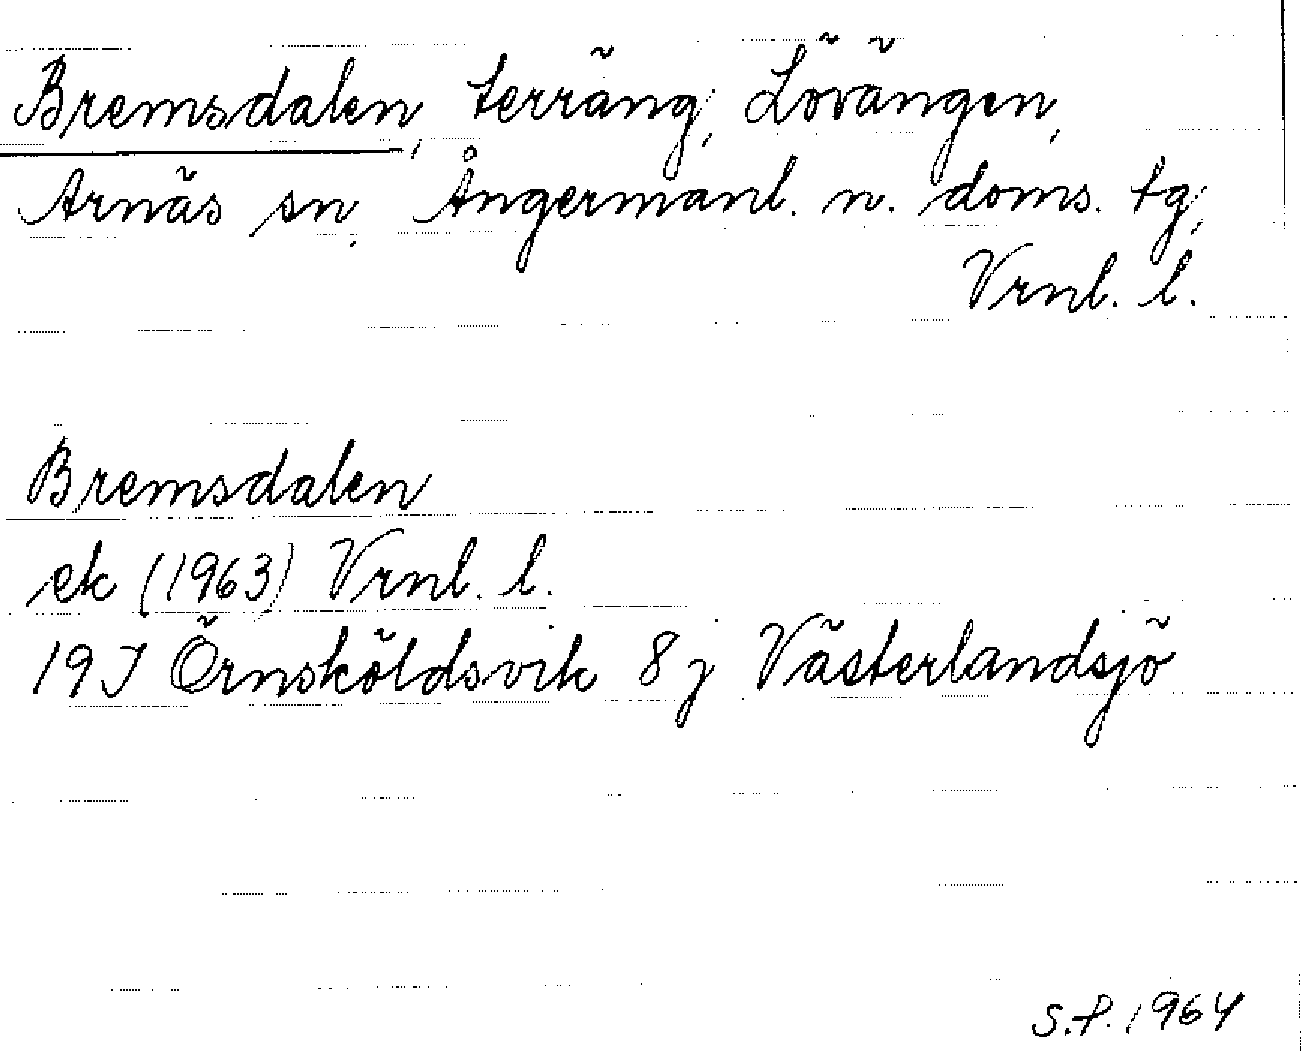 Bremsdalen, terräng, Lövängen,
Arnäs sn, Ångermanl. n. doms. tg,
Vrnl. l.
Bremsdalen
ek (1963) Vrnl. l.
19J Örnsköldsvik 8j Västerlandsjö
S.P. 1964